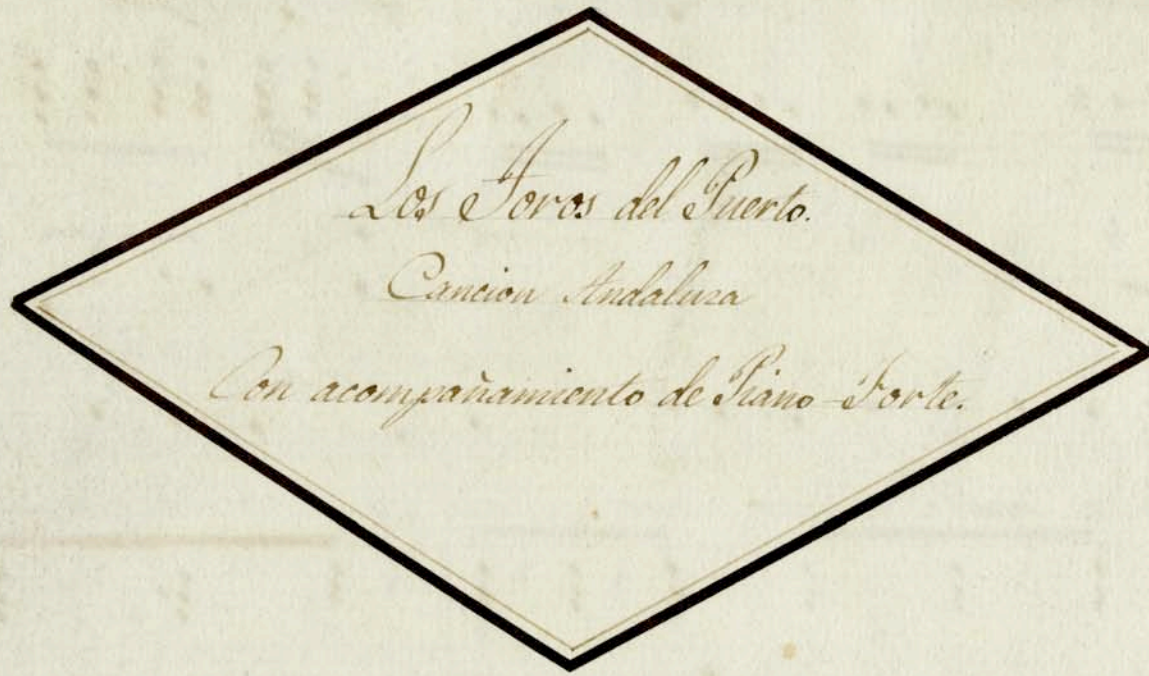 Los Toros del Puerto.
Cancion Andaluza
Con acompañamiento de Piano-Forte.